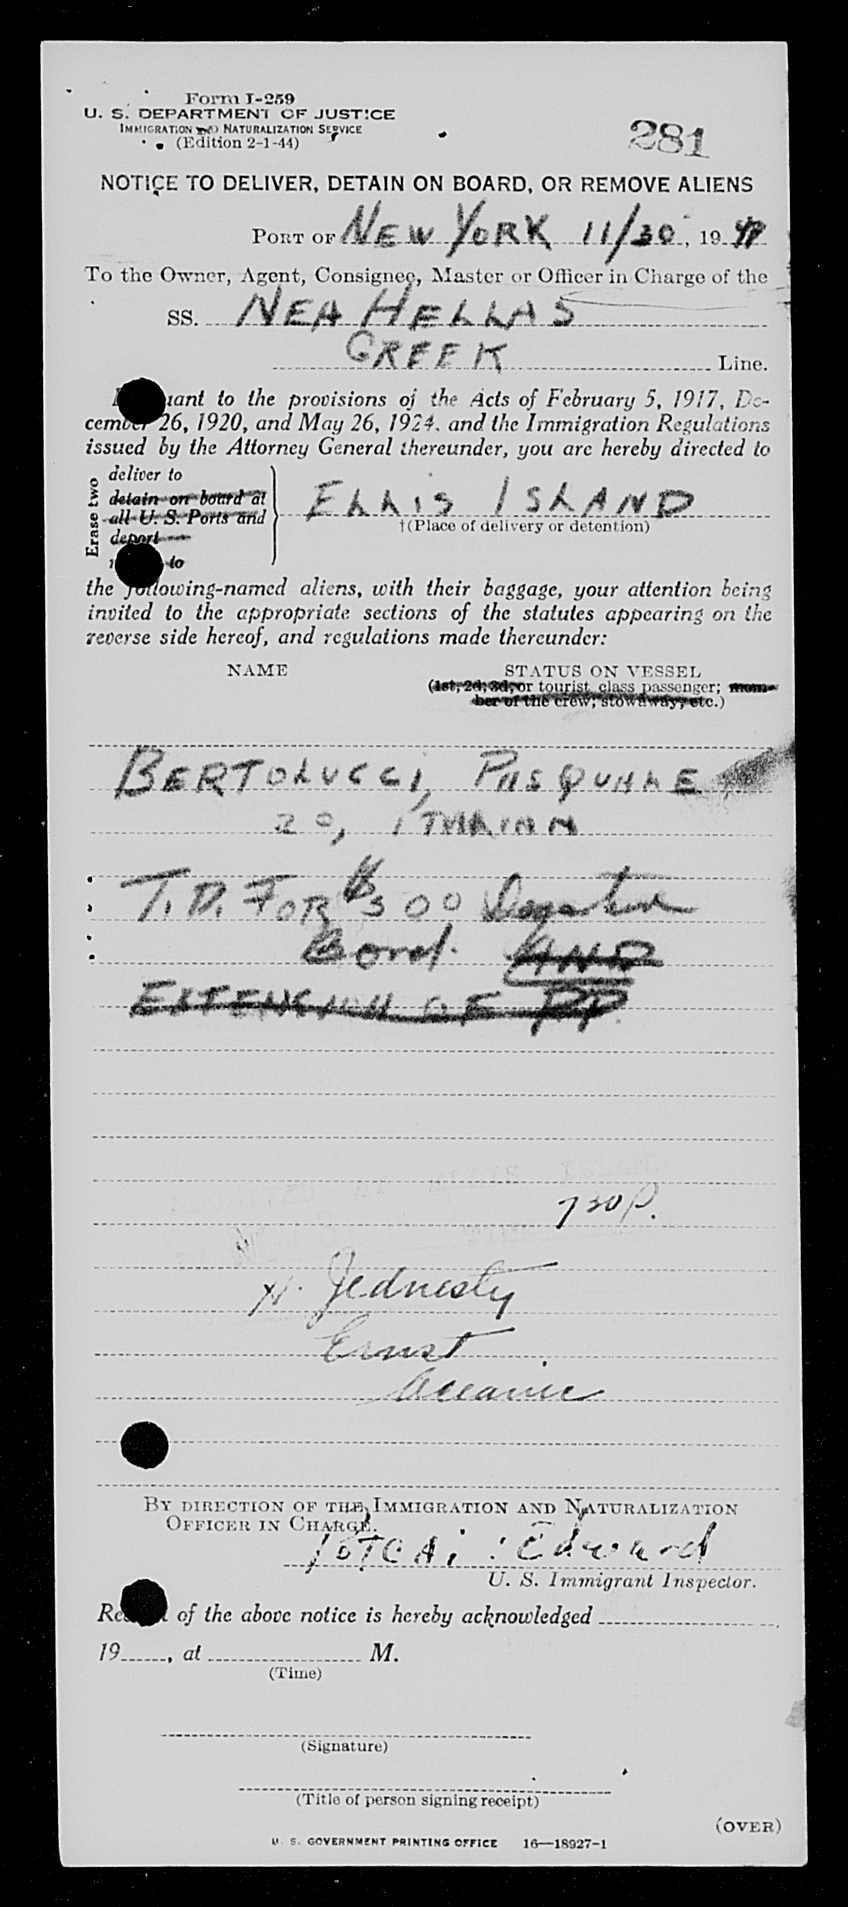 Form I-259
U. S. DEPARTMENT OF JUSTICE
IMMIGRATION AND NATURALIZATION SERVICE
(Edition 2-1-44)
281
NOTICE TO DELIVER, DETAIN ON BOARD, OR REMOVE ALIENS
PORT OF NEW YORK 11/30, 19
To the Owner, Agent, Consignee, Master or Officer in Charge of the
SS. NEA HELLAS
GREEK Line.
uant to the provisions of the Acts of February 5, 1917, De-
cember 26, 1920, and May 26, 1924, and the Immigration Regulations
issued by the Attorney General thereunder, you are hereby directed to
Erase two
deliver to
detain on board at
all U. S. Ports and
deport
to
ELLIS ISLAND
†(Place of delivery or detention)
the following-named aliens, with their baggage, your attention being
invited to the appropriate sections of the statutes appearing on the
reverse side hereof, and regulations made thereunder:
NAME
STATUS ON VESSEL
(1st, 2d, 3d, or tourist class passenger; mem-
ber of the crew; stowaway, etc.)
BERTOLUCCI, PASQUALE
20, ITALIAN
T.D. FOR $500 Departure
Bond. AND
EXTENSION OF PP
730 P.
Jednesty
Ernst
Oceanic
BY DIRECTION OF THE IMMIGRATION AND NATURALIZATION
OFFICER IN CHARGE.
Edward
U. S. Immigrant Inspector.
Re t of the above notice is hereby acknowledged
19 , at M.
(Time)
(Signature)
(Title of person signing receipt)
(OVER)
U. S. GOVERNMENT PRINTING OFFICE 16—18927-1